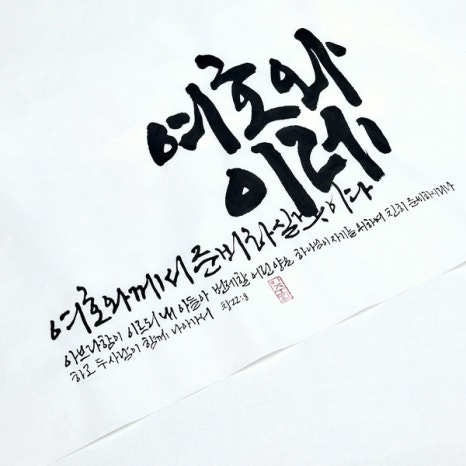 여호와
이레
여호와께서 준비하실 것이다
아브라함이 이르되 내 아들아 번제할 어린 양은 하나님이 자기를 위하여 친히 준비하시리라
하고 두 사람이 함께 나아가서 창22:8